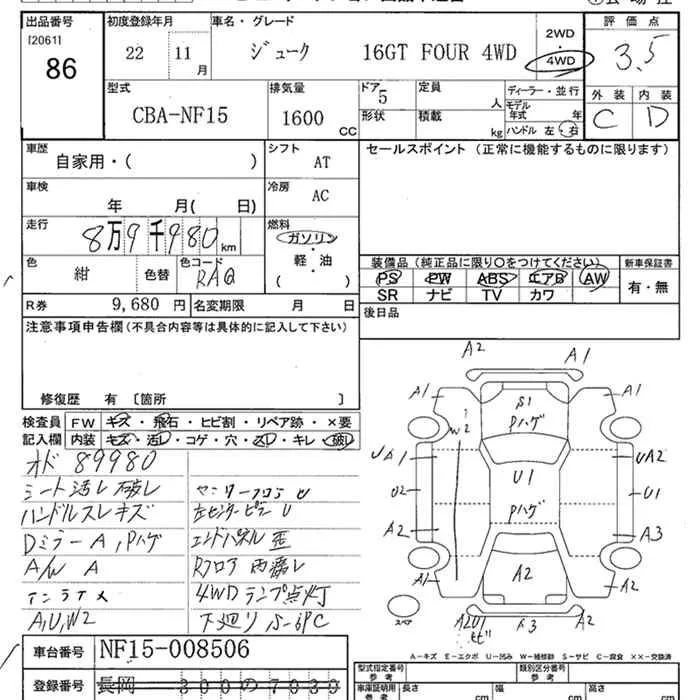 出品番号 初度登録年月 車名・グレード 2WD 評価点
[2061]
86 22 11月 ジューク 16GT FOUR 4WD 4WD 3.5
型式 排気量 ドア 定員 ディーラー・並行 外装 内装
CBA-NF15 1600 CC 5 人 モデル年式 年 C D
形状 積載 kg ハンドル 左・右
車歴 自家用・( ) シフト AT セールスポイント (正常に機能するものに限ります)
車検 年 月( 日) 冷房 AC
走行 8万9千980km 燃料 ガソリン
軽・油
( )
色 紺 色替 色コード RAQ
装備品 (純正品に限り○をつけてください) 新車保証書
PS PW ABS エアB AW 有・無
SR ナビ TV カワ
R券 9,680円 名変期限 月 日 後日品
注意事項申告欄 (不具合内容等は具体的に記入して下さい)
修復歴 有 [箇所 ]
検査員 FW キズ・飛石・ヒビ割・リペア跡・×要
記入欄 内装 キズ・汚レ・コゲ・穴・スレ・キレ・破レ
オド 89980
シート汚レ破レ
ハンドルスレキズ 左センターピラー U
Dミラー A, Pハゲ エンドパネル 歪
A/W A Rフロア 雨漏レ
4WDランプ点灯
A,U,W2 下廻り S-6PC
A2 A1
A1 S1 A1
Pハゲ
W2
UA1 U1 UA2
U2 U1
Pハゲ
A2 A3
A2
A1 A2
スペア A2U1 A3 A2
A-キズ E-エクボ U-凹み W-補修跡 S-サビ C-腐食 ××-交換済
車台番号 NF15-008506
登録番号 長岡 300 の 7039
型式指定番号 類別区分番号
車庫証明用 参考 長さ cm 幅 cm 高さ cm